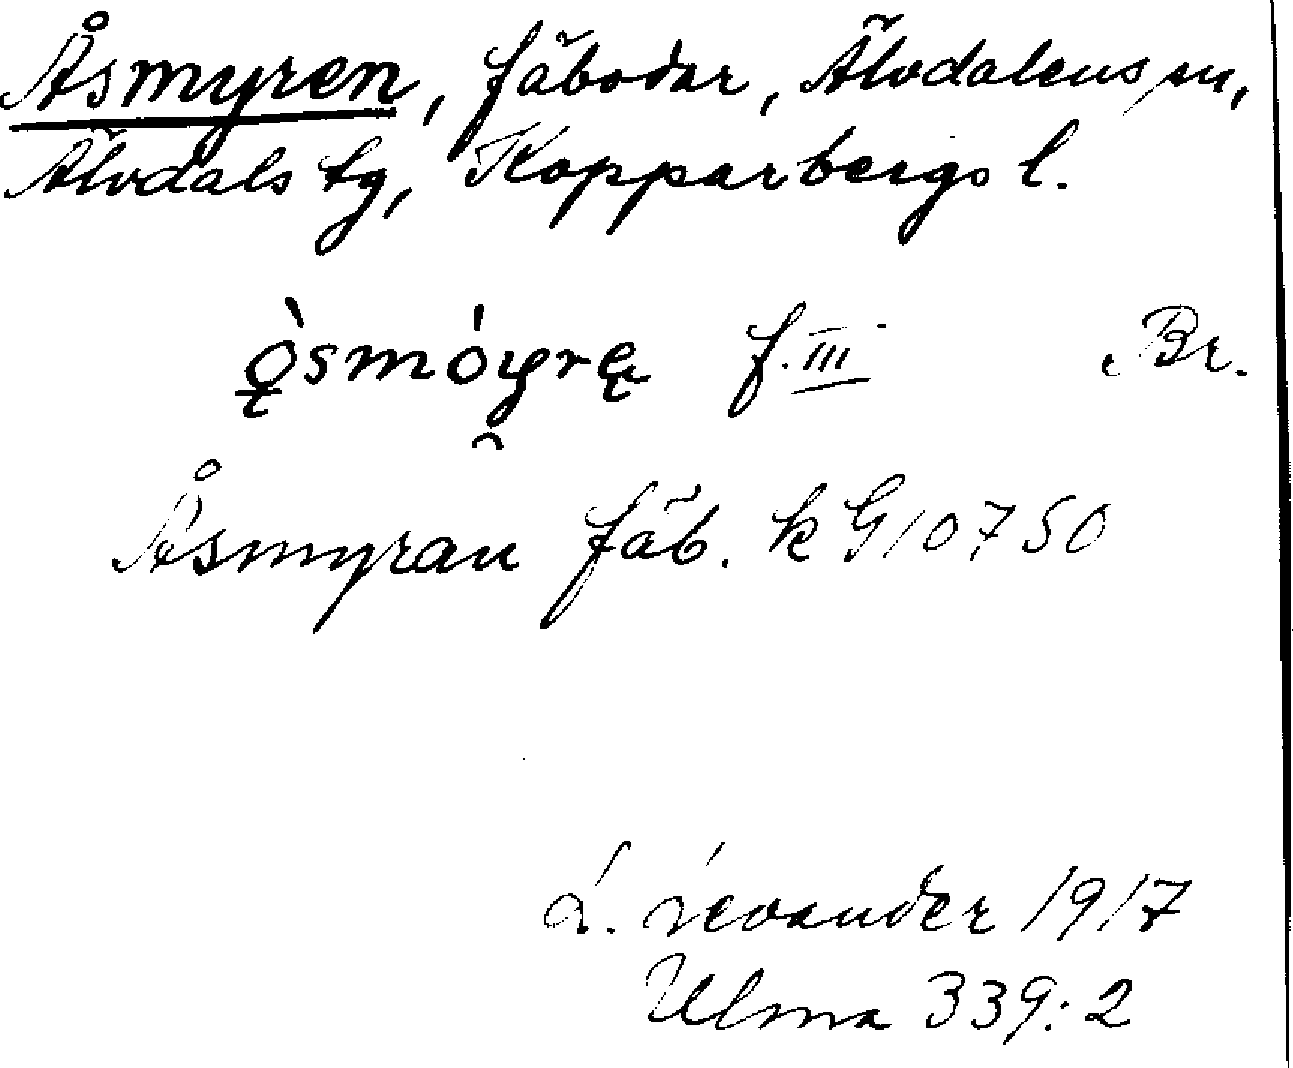 Åsmyren, fäbodar, Älvdalens sn,
Älvdals tg, Kopparbergs l.
ǫ̀smóyrę f. III Br.
Åsmyran fäb. k G 10750
L. Levander 1917
Ulma 339:2